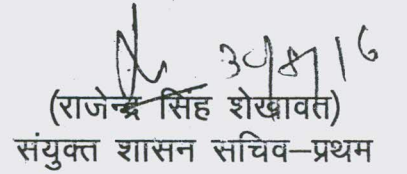 30/8/16
(राजेन्द्र सिंह शेखावत)
संयुक्त शासन सचिव–प्रथम